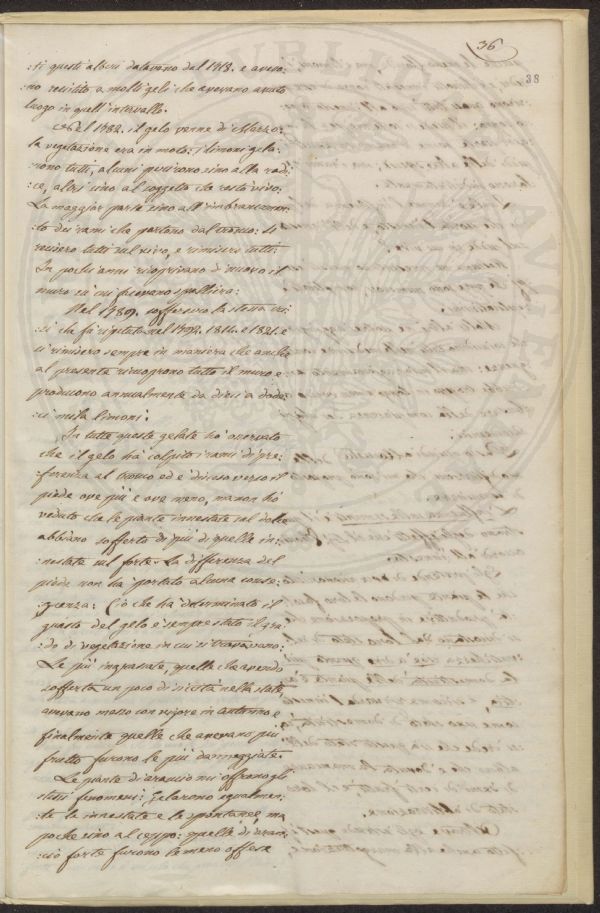 36
38
:ti questi alberi datavano dal 1718. e aveva:
:no resistito a molti geli che avevano avuto
luogo in quell'intervallo.
Nel 1782. il gelo venne di Marzo:
la vegetazione era in moto: i limoni gela:
:rono tutti, alcuni perirono sino alla radi:
:ce, altri sino al soggetto che restò vivo:
La maggior parte sino all'imbrancamen:
:to dei rami che partono dal tronco: si
recisero tutti sul vivo, e rimisero tutti:
In pochi anni ricoprirono di nuovo il
muro cui facevano spalliera:
Nel 1789. soffersero la stessa cri:
:si che fu ripetuta nel 1814. e 1821. e
si rimisero sempre in maniera che anche
al presente ricuoprono tutto il muro e
producono annualmente da dieci a dode:
:ci mila limoni.
In tutte queste gelate hò osservato
che il gelo hà colpito i rami di pre:
:ferenza al tronco ed è disceso verso il
piede ove più e ove meno, ma non hò
veduto che le piante innestate sul dolce
abbiano sofferto di più di quelle in:
:nestate sul forte. La differenza del
piede non ha portato alcuna conse:
:guenza: Ciò che hà determinato il
guasto del gelo è sempre stato il gra:
:do di vegetazione in cui si trovavano:
Le più ingrassate, quelle che avendo
sofferta un poco di siccità nella state,
avevano messo con vigore in autunno e
finalmente quelle che avevano più
frutto furono le più danneggiate.
Le piante di arancio mi offrono gli
stessi fenomeni: Gelarono egualmen:
:te le innestate e le spontanee, ma
poche sino al ceppo: quelle di aran:
:cio forte furono le meno offese